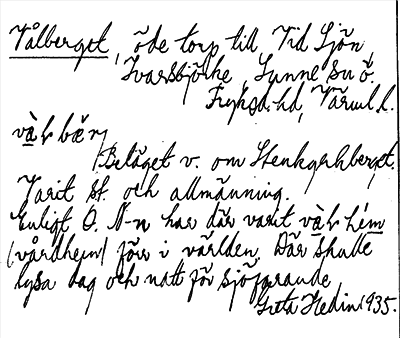 Vålberget, öde torp till Vid Sjön,
Ivarsbjörke, Sunne su ö.
Fryksd. hd, Värml. l.
vàl bær
Beläget v. om Stenkarhberget.
Varit st. och allmänning.
Enligt O. N-n har där varit vàl hém
(vårdhem) förr i världen. Där skulle
lysa dag och natt för sjöfarande.
Greta Hedin 1935.